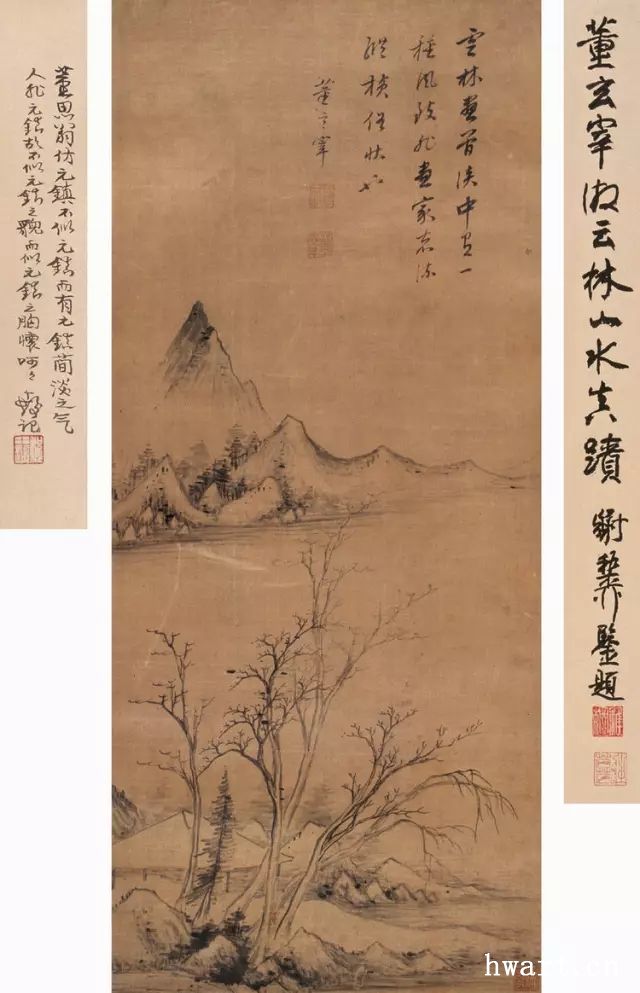 董玄宰倣云林山水真蹟
鑒題
雲林畫簡淡中有一
種風致非畫家
縱橫俗狀也
董玄宰
董思翁仿元鎮不似元鎮而有元鎮簡淡之气
人非元鎮故不似元鎮之貌而似元鎮之胸懷呵呵
记
hwart.cn